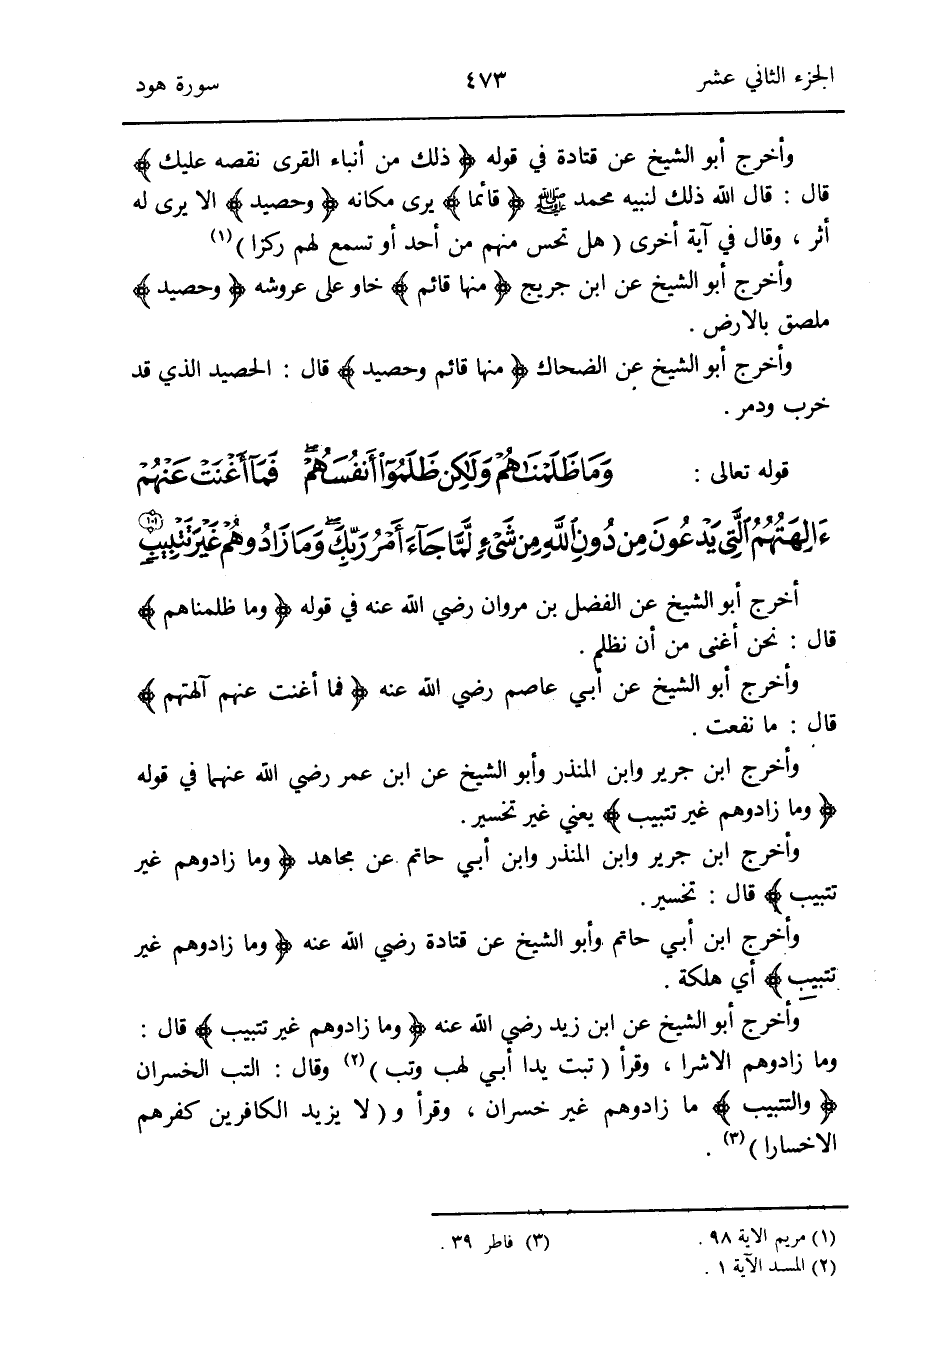 الجزء الثاني عشر ٤٧٣ سورة هود
وأخرج أبو الشيخ عن قتادة في قوله ﴿ ذلك من أنباء القرى نقصه عليك ﴾
قال : قال الله ذلك لنبيه محمد ﷺ ﴿ قائما ﴾ يرى مكانه ﴿ وحصيد ﴾ الا يرى له
أثر ، وقال في آية أخرى ( هل تحس منهم من أحد أو تسمع لهم ركزا ) (١)
وأخرج أبو الشيخ عن ابن جريج ﴿ منها قائم ﴾ خاو على عروشه ﴿ وحصيد ﴾
ملصق بالارض .
وأخرج أبو الشيخ عن الضحاك ﴿ منها قائم وحصيد ﴾ قال : الحصيد الذي قد
خرب ودمر .
قوله تعالى : وَمَا ظَلَمْنَاهُمْ وَلَٰكِن ظَلَمُوٓا۟ أَنفُسَهُمْ ۖ فَمَآ أَغْنَتْ عَنْهُمْ
ءَالِهَتُهُمُ ٱلَّتِى يَدْعُونَ مِن دُونِ ٱللَّهِ مِن شَىْءٍ لَّمَّا جَآءَ أَمْرُ رَبِّكَ ۖ وَمَا زَادُوهُمْ غَيْرَ تَتْبِيبٍ ١٠١
أخرج أبو الشيخ عن الفضل بن مروان رضي الله عنه في قوله ﴿ وما ظلمناهم ﴾
قال : نحن أغنى من أن نظلم .
وأخرج أبو الشيخ عن أبي عاصم رضي الله عنه ﴿ فما أغنت عنهم آلهتهم ﴾
قال : ما نفعت .
وأخرج ابن جرير وابن المنذر وأبو الشيخ عن ابن عمر رضي الله عنهما في قوله
﴿ وما زادوهم غير تتبيب ﴾ يعني غير تخسير .
وأخرج ابن جرير وابن المنذر وابن أبي حاتم عن مجاهد ﴿ وما زادوهم غير
تتبيب ﴾ قال : تخسير .
وأخرج ابن أبي حاتم وأبو الشيخ عن قتادة رضي الله عنه ﴿ وما زادوهم غير
تتبيب ﴾ أي هلكة .
وأخرج أبو الشيخ عن ابن زيد رضي الله عنه ﴿ وما زادوهم غير تتبيب ﴾ قال :
وما زادوهم الاشرا ، وقرأ ( تبت يدا أبي لهب وتب ) (٢) وقال : التب الخسران
﴿ والتتبيب ﴾ ما زادوهم غير خسران ، وقرأ و ( لا يزيد الكافرين كفرهم
الاخسارا ) (٣) .
(١) مريم الاية ٩٨ . (٣) فاطر ٣٩ .
(٢) المسد الآية ١ .